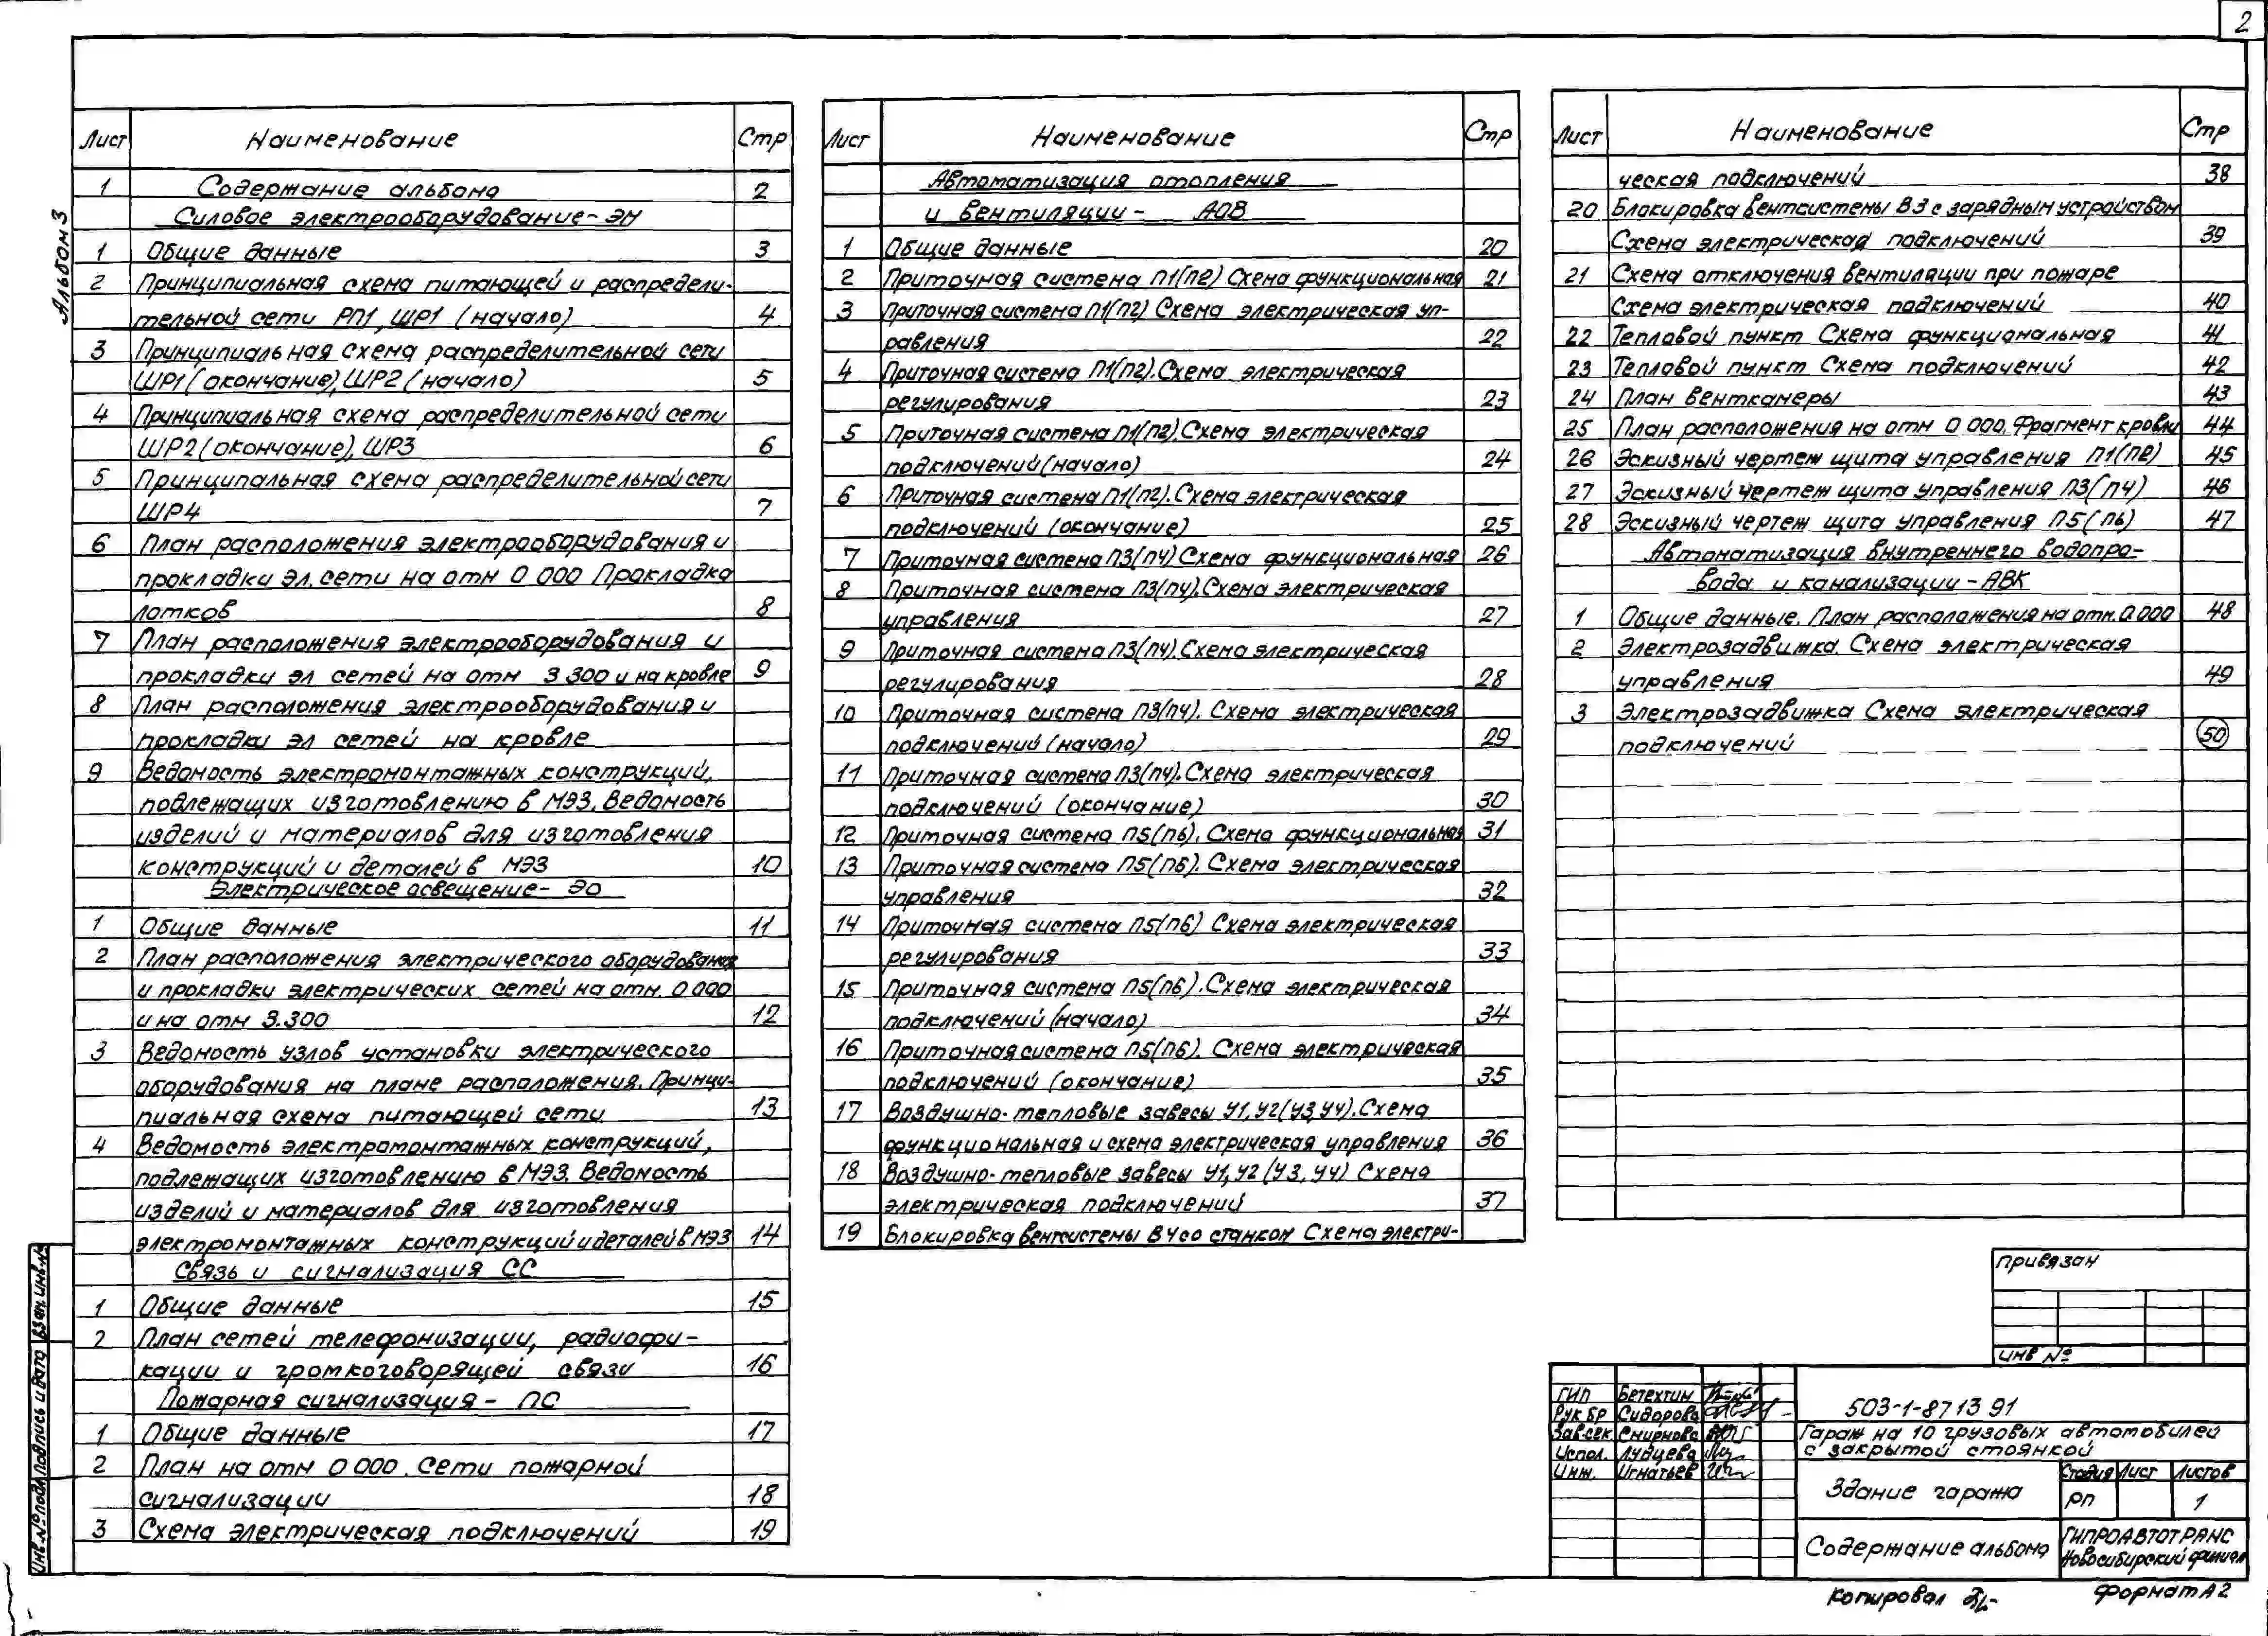 2
Альбом 3
Лист Наименование Стр
1 Содержание альбома 2
Силовое электрооборудование - ЭМ
1 Общие данные 3
2 Принципиальная схема питающей и распредели-
тельной сети РП1, ШР1 (начало) 4
3 Принципиальная схема распределительной сети
ШР1 (окончание), ШР2 (начало) 5
4 Принципиальная схема распределительной сети
ШР2 (окончание), ШР3 6
5 Принципальная схема распределительной сети
ШР4 7
6 План расположения электрооборудования и
прокладки эл. сети на отм 0 000 Прокладка
лотков 8
7 План расположения электрооборудования и
прокладки эл сетей на отм 3 300 и на кровле 9
8 План расположения электрооборудования и
прокладки эл сетей на кровле
9 Ведомость электромонтажных конструкций,
подлежащих изготовлению в МЭЗ. Ведомость
изделий и материалов для изготовления
конструкций и деталей в МЭЗ 10
Электрическое освещение - ЭО
1 Общие данные 11
2 План расположения электрического оборудования
и прокладки электрических сетей на отм. 0 000
и на отм 3.300 12
3 Ведомость узлов установки электрического
оборудования на плане расположения. Принци-
пиальная схема питающей сети 13
4 Ведомость электромонтажных конструкций,
подлежащих изготовлению в МЭЗ. Ведомость
изделий и материалов для изготовления
электромонтажных конструкций и деталей в МЭЗ 14
Связь и сигнализация СС
1 Общие данные 15
2 План сетей телефонизации, радиофи-
кации и громкоговорящей связи 16
Пожарная сигнализация - ПС
1 Общие данные 17
2 План на отм 0 000. Сети пожарной
сигнализации 18
3 Схема электрическая подключений 19
Лист Наименование Стр
Автоматизация отопления
и вентиляции - АОВ
1 Общие данные 20
2 Приточная система П1(П2) Схема функциональная 21
3 Приточная система П1(П2) Схема электрическая уп-
равления 22
4 Приточная система П1(П2). Схема электрическая
регулирования 23
5 Приточная система П1(П2). Схема электрическая
подключений (начало) 24
6 Приточная система П1(П2). Схема электрическая
подключений (окончание) 25
7 Приточная система П3(П4) Схема функциональная 26
8 Приточная система П3(П4). Схема электрическая
управления 27
9 Приточная система П3(П4). Схема электрическая
регулирования 28
10 Приточная система П3(П4). Схема электрическая
подключений (начало) 29
11 Приточная система П3(П4). Схема электрическая
подключений (окончание) 30
12 Приточная система П5(П6). Схема функциональная 31
13 Приточная система П5(П6). Схема электрическая
управления 32
14 Приточная система П5(П6) Схема электрическая
регулирования 33
15 Приточная система П5(П6). Схема электрическая
подключений (начало) 34
16 Приточная система П5(П6). Схема электрическая
подключений (окончание) 35
17 Воздушно-тепловые завесы У1, У2 (У3, У4). Схема
функциональная и схема электрическая управления 36
18 Воздушно-тепловые завесы У1, У2 (У3, У4) Схема
электрическая подключений 37
19 Блокировка вентсистемы В4 со станком Схема электри-
Лист Наименование Стр
ческая подключений 38
20 Блокировка вентсистемы В3 с зарядным устройством
Схема электрическая подключений 39
21 Схема отключения вентиляции при пожаре
Схема электрическая подключений 40
22 Тепловой пункт Схема функциональная 41
23 Тепловой пункт Схема подключений 42
24 План венткамеры 43
25 План расположения на отм 0 000. Фрагмент кровли 44
26 Эскизный чертеж щита управления П1(П2) 45
27 Эскизный чертеж щита управления П3(П4) 46
28 Эскизный чертеж щита управления П5(П6) 47
Автоматизация внутреннего водопро-
вода и канализации - АВК
1 Общие данные. План расположения на отм. 0.000 48
2 Электрозадвижка. Схема электрическая
управления 49
3 Электрозадвижка Схема электрическая
подключений 50
Привязан
Инв №
ГИП Бетехтин
Рук бр Сидорова
Зав.сек Смирнова
Испол. Лубцева
Инж. Игнатьев
503-1-87 13 91
Гараж на 10 грузовых автомобилей
с закрытой стоянкой
Здание гаража
Стадия Лист Листов
РП 1
Содержание альбома
ГИПРОАВТОТРАНС
Новосибирский филиал
Копировал
Формат А2
Инв. № подл Подпись и дата Взам. инв. №